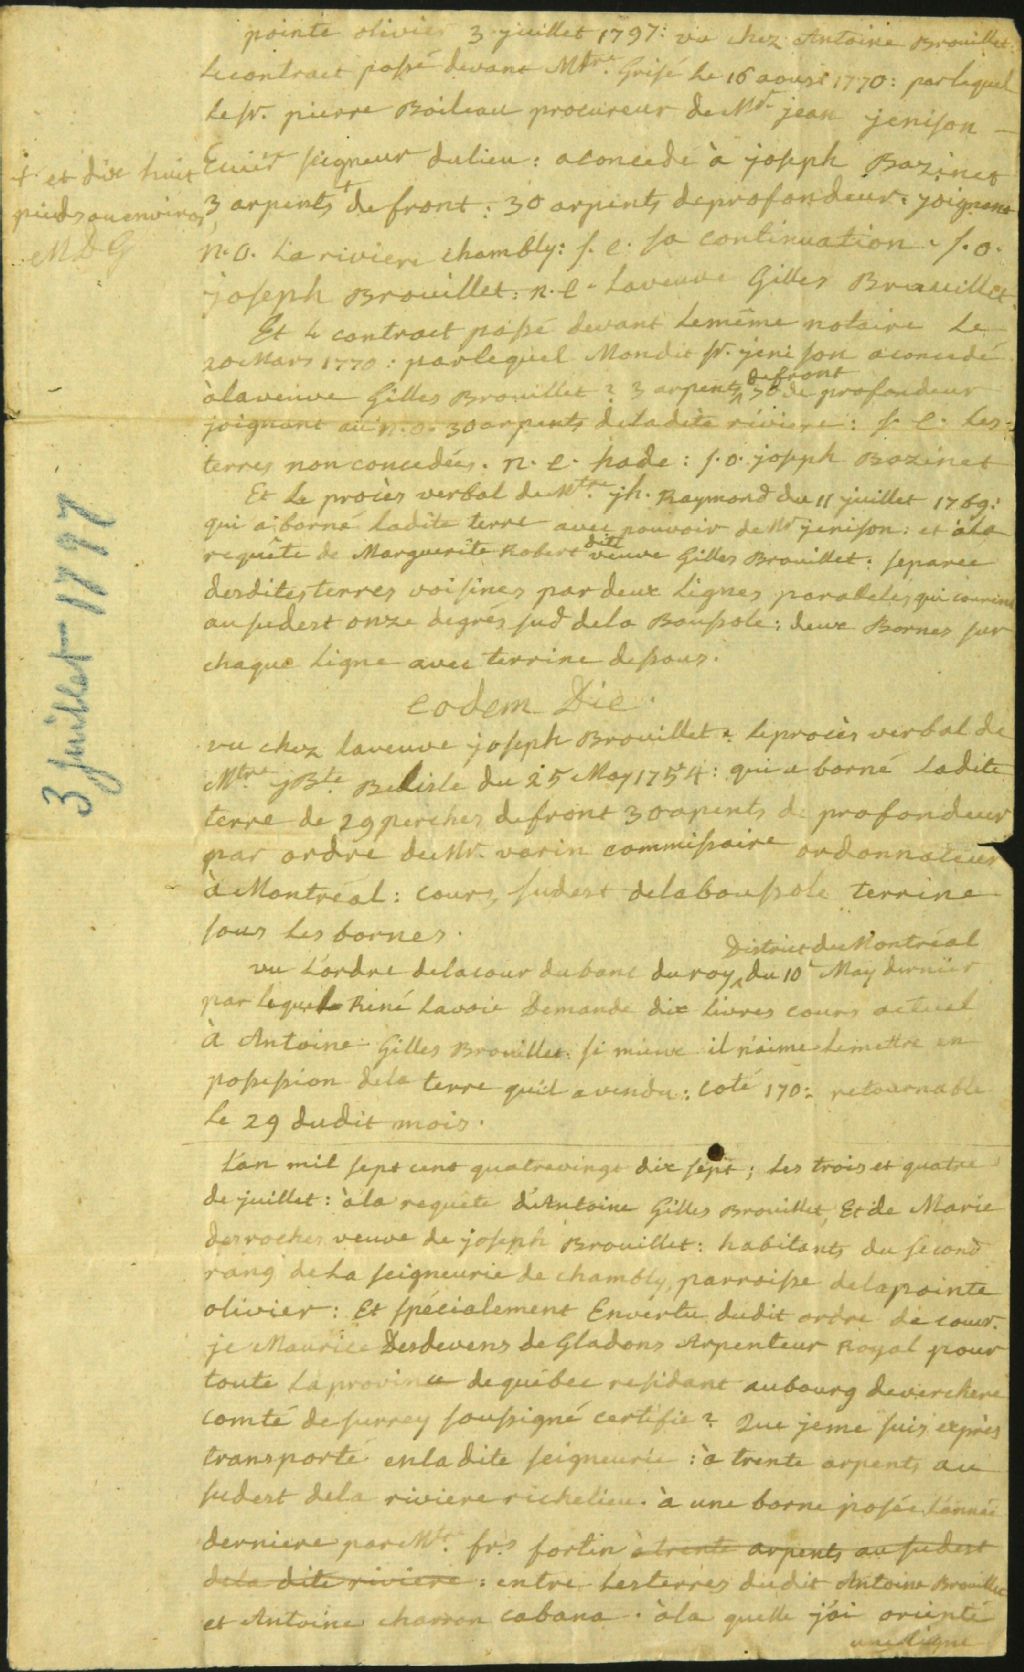 pointe olivier 3 juillet 1797: vu chez Antoine Brouillet:
Le contract passé devant Mtre. Grisé Le 16 aoust 1770: par lequel
Le sr. pierre Boileau procureur de Mr. jean jenison —
Ecuier seigneur du lieu: a concedé à joseph Bazinet
+ et dix huit
pieds ou environ
M D G
3 arpents + de front: 30 arpents de profondeur: joignant
n.o. La riviere chambly: s. e. sa continuation. s.o.
joseph Brouillet: n. e. La veuve Gilles Brouillet.
Et Le contract passé devant Le même notaire Le
20 Mars 1770: par lequel Mondit sr. jenison a concedé
à la veuve Gilles Brouillet: 3 arpents de front 30 de profondeur
joignant au n.o. 30 arpents de la dite riviere: s. e. Les
terres non concedées. n. e. : s.o. joseph Bazinet
Et Le procès verbal de Mtre. jh. Raymond du 11 juillet 1769:
qui a borné Ladite terre avec pouvoir de Mr jenison: et à la
requête de Marguerite Robert dite veuve Gilles Brouillet: separée
desdites terres voisines par deux Lignes paralleles qui courent
au sudest onze degrés sud de la Boussole: deux Bornes sur
chaque Ligne avec terrine dessous.
3 juillet 1797
eodem Die.
vu chez la veuve joseph Brouillet: Le procès verbal de
Mtre jBte. Belisle du 25 May 1754: qui a borné Ladite
terre de 29 perches de front 30 arpents de profondeur
par ordre de Mr. varin commissaire ordonnateur
à Montréal: cours sudest de la boussole terrine
sous Les bornes.
vu L'ordre de la cour du banc du roy District de Montréal du 10 May dernier
par lequel René Lavoie Demande dix Livres cours actuel
à Antoine Gilles Brouillet: si mieux il n'aime Le mettre en
possession de la terre qu'il a vendu: coté 170: retournable
Le 29 dudit mois.
L'an mil sept cent quatrevingt dix sept; Les trois et quatre
de juillet: à la requête d'Antoine Gilles Brouillet, Et de Marie
desroches veuve de joseph Brouillet: habitants du second
rang de La seigneurie de chambly, parroisse de la pointe
olivier: Et spécialement En vertu dudit ordre de cour.
je Maurice Desdevens de Gladons Arpenteur Royal pour
toute La province de québec residant au bourg de verchere
comté de surrey soussigné certifie: Que je me suis exprès
transporté en la dite seigneurie: à trente arpents au
sudest de la riviere richelieu. à une borne posée L'année
derniere par Mtre. frs. fortin à trente arpents au sudest
de la dite riviere: entre Les terres dudit Antoine Brouillet
et Antoine charron cabana. à la quelle j'ai orienté
une Ligne